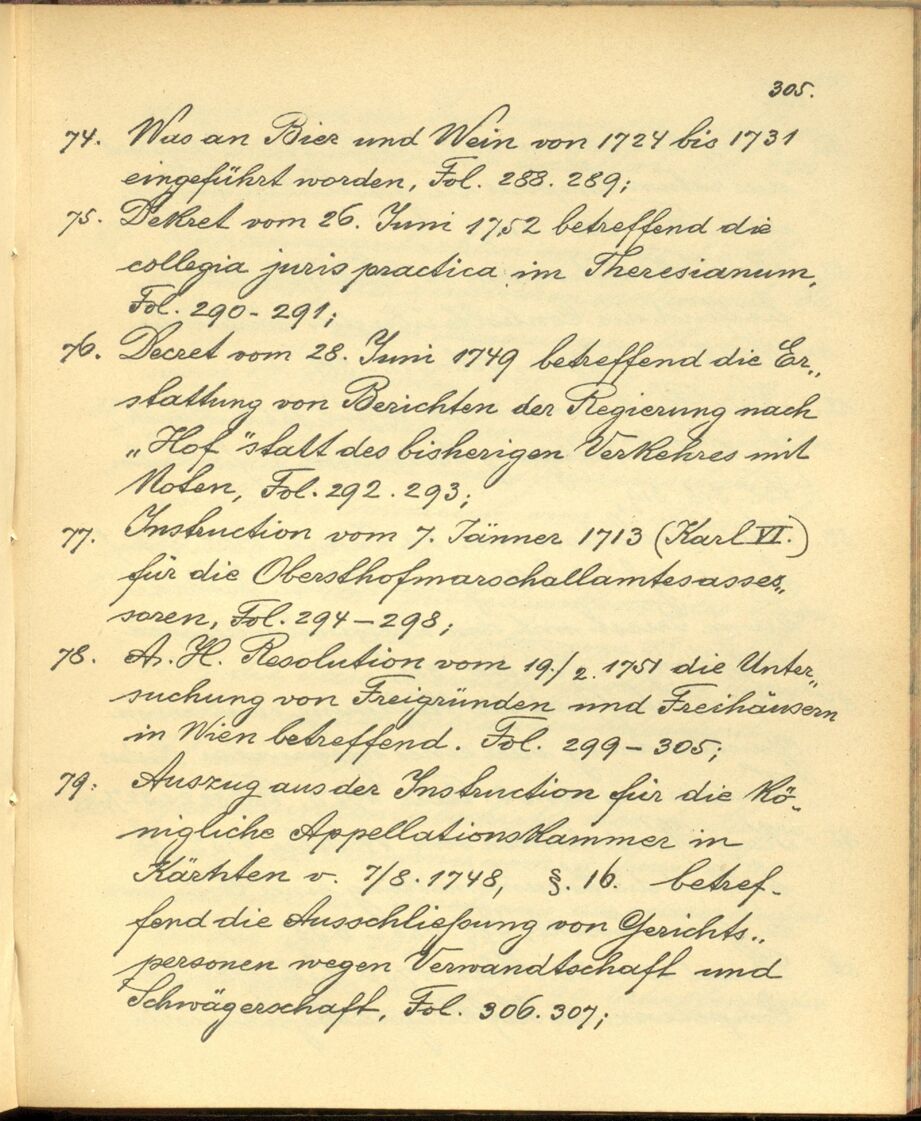 305.
74. Was an Bier und Wein von 1724 bis 1731
eingeführt worden, Fol. 288. 289;
75. Dekret vom 26. Juni 1752 betreffend die
collegia juris practica im Theresianum,
Fol. 290-291;
76. Decret vom 28. Juni 1749 betreffend die Er„
stattung von Berichten der Regierung nach
„Hof" statt des bisherigen Verkehres mit
Noten, Fol. 292. 293;
77. Instruction vom 7. Jänner 1713 (Karl VI.)
für die Obersthofmarschallamtesasses„
soren, Fol. 294-298;
78. A. H. Resolution vom 19./2. 1751 die Unter„
suchung von Freigründen und Freihäusern
in Wien betreffend. Fol. 299-305;
79. Auszug aus der Instruction für die Kö-
nigliche Appellationskammer in
Kärnten v. 7/8. 1748, §. 16. betref-
fend die Ausschließung von Gerichts„
personen wegen Verwandtschaft und
Schwägerschaft, Fol. 306. 307;